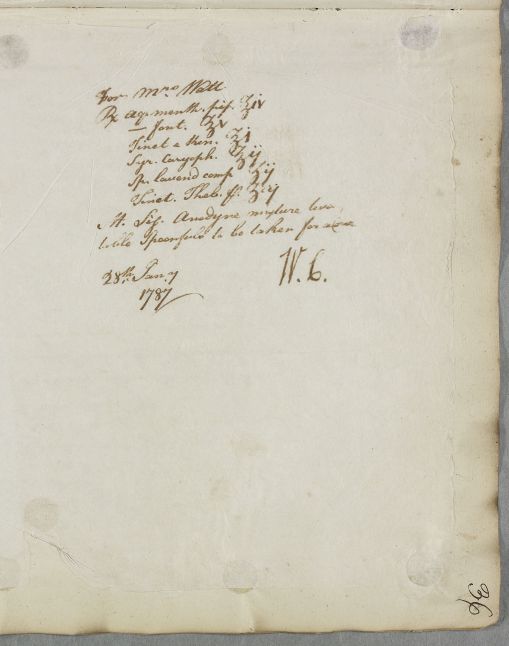 For Mrs Watt
℞ Aq. menth. pip. ℥iv
— font. ℥v
Tinct e Kin. ℥j
Syr. Caryoph. ℥ij
Sp. lavend comp ʒij
Tinct. Theb. ʒij
M. Sig. Anodyne mixture two
table Spoonfuls to be taken for a Dose
W. C.
28th Jan.y
1787
36